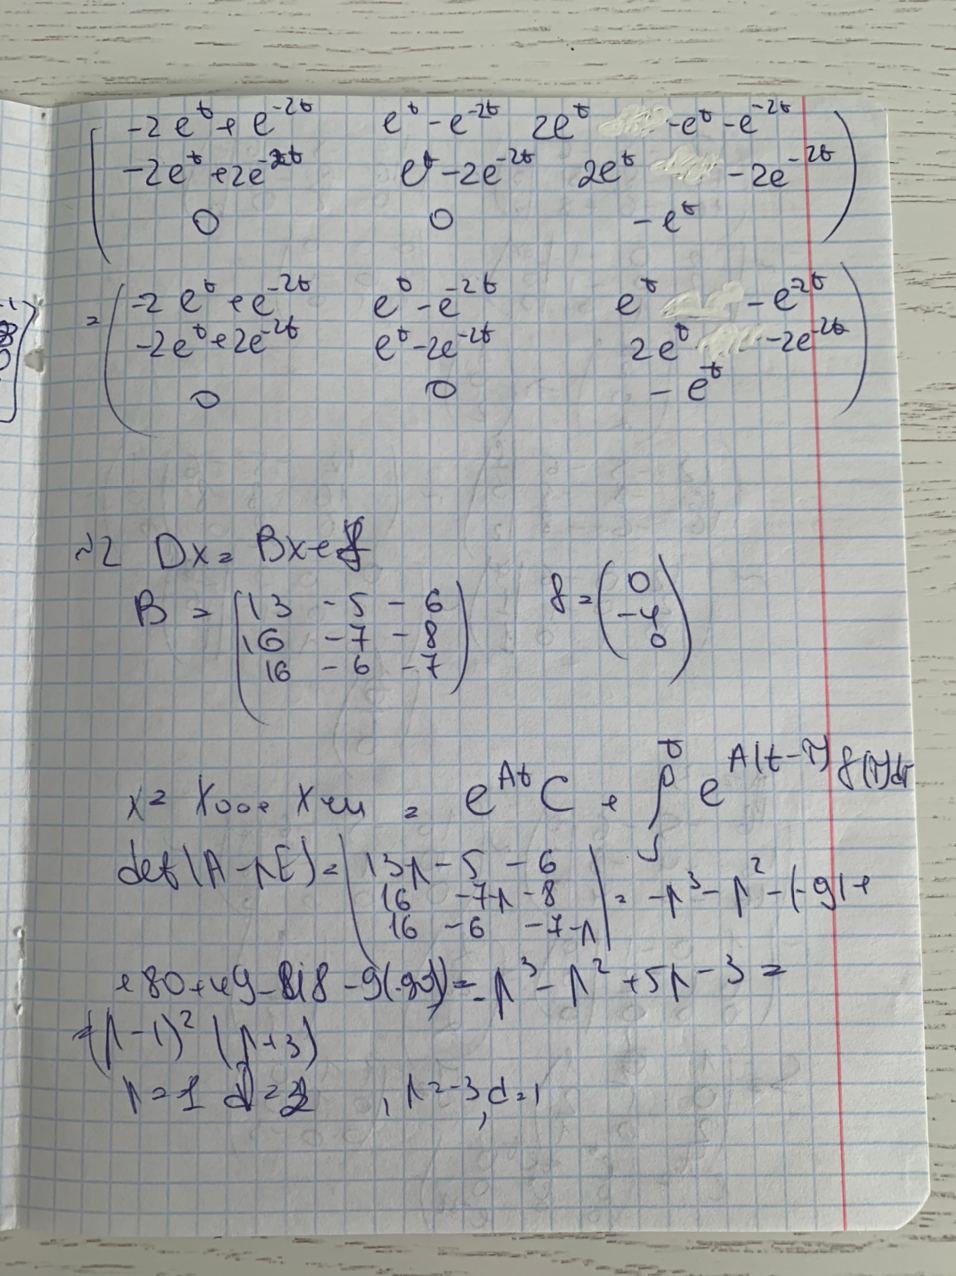 -2e^t + e^-2t e^t - e^-2t 2e^t - e^t - e^-2t
-2e^t + 2e^-2t e^t - 2e^-2t 2e^t - 2e^-2t
0 0 - e^t
= -2e^t + e^-2t e^t - e^-2t e^t - e^2t
-2e^t + 2e^-2t e^t - 2e^-2t 2e^t - 2e^-2t
0 0 - e^t
№2 Dx = Bx + f
B = (13 -5 -6 f = (0
16 -7 -8 -4
16 -6 -7) 0)
x = Xоо + Xчн = e^At C + ∫ e^A(t-τ) f(τ)dτ
det(A - λE) = |13-λ -5 -6
16 -7-λ -8
16 -6 -7-λ| = -λ^3 - λ^2 - (-91 +
+ 80 + 49 = -λ^3 - λ^2 + 5λ - 3 =
-(λ-1)^2 (λ+3)
λ=1 d=2 , λ=-3, d=1